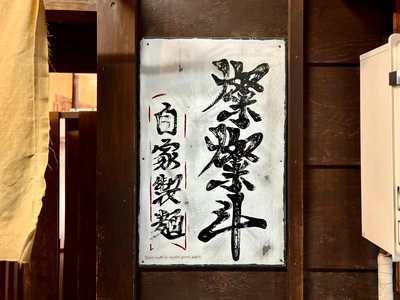 燦燦斗
自家製麺